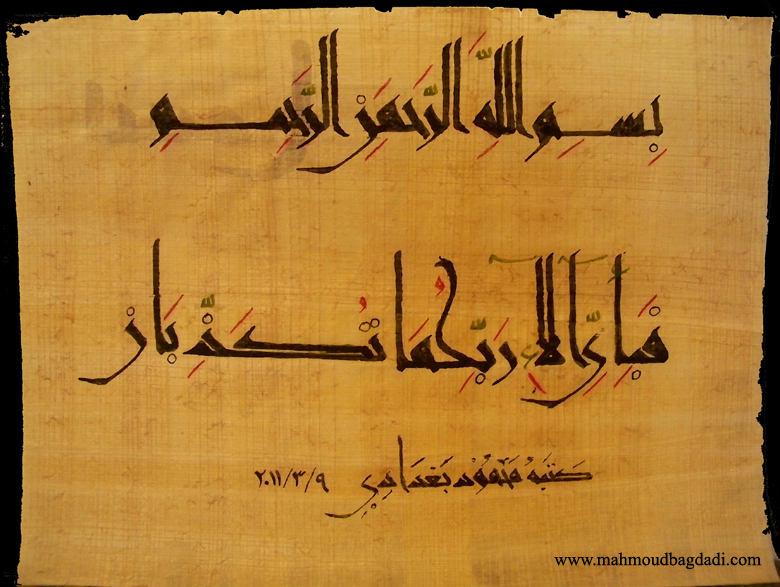 بِسْمِ اللَّهِ الرَّحْمَنِ الرَّحِيمِ
فَبِأَيِّ آلَاءِ رَبِّكُمَا تُكَذِّبَانِ
كتبه محمود بغدادي ٢٠١١/٣/٩
www.mahmoudbagdadi.com